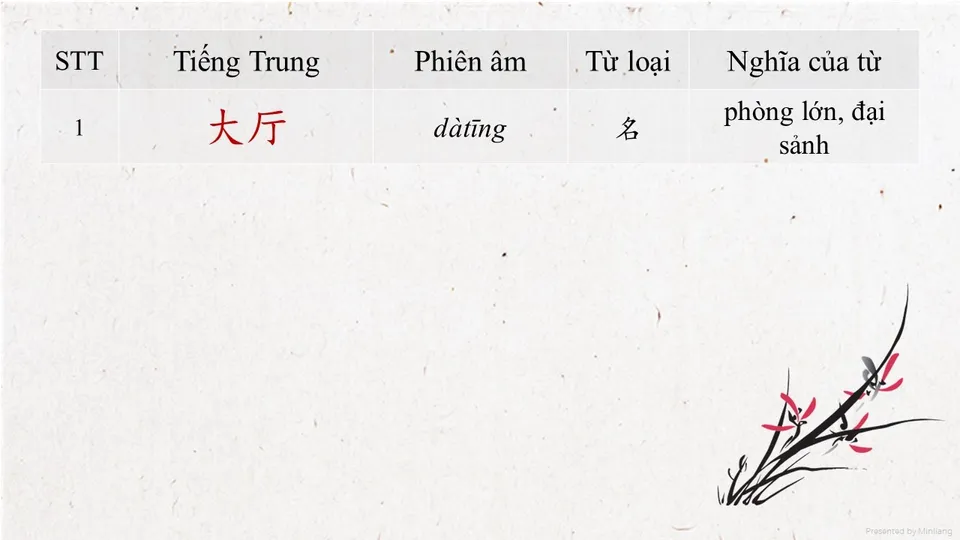 STT Tiếng Trung Phiên âm Từ loại Nghĩa của từ
1 大厅 dàtīng 名 phòng lớn, đại
sảnh
Presented by Minliang